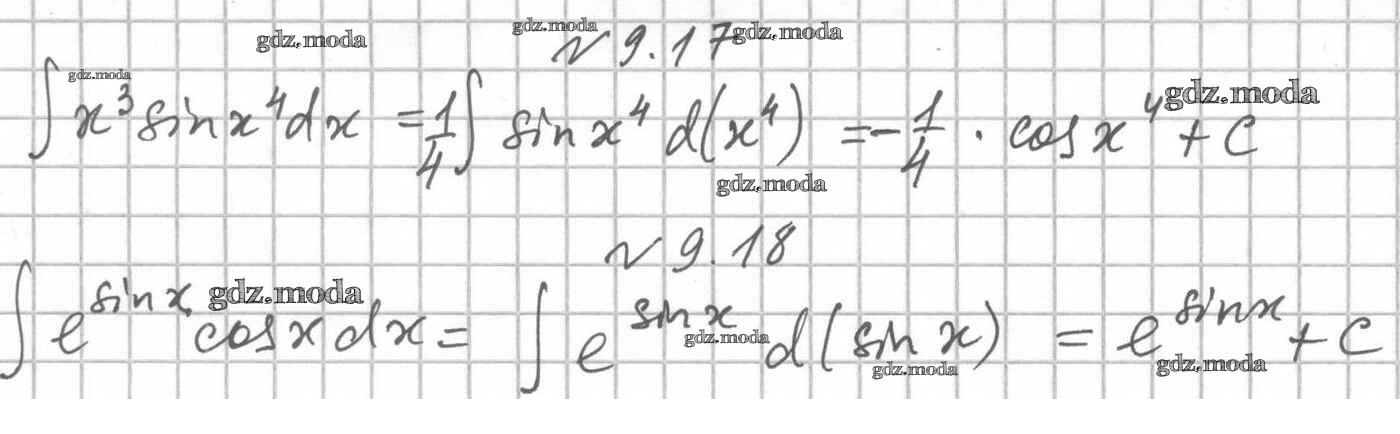 gdz.moda gdz.moda N 9.17 gdz.moda
gdz.moda
∫ x³ sin x⁴ dx = 1/4 ∫ sin x⁴ d(x⁴) = - 1/4 · cos x⁴ + C gdz.moda
gdz.moda
N 9.18
∫ e^(sin x) cos x dx = ∫ e^(sin x) d(sin x) = e^(sin x) + C
gdz.moda gdz.moda gdz.moda gdz.moda